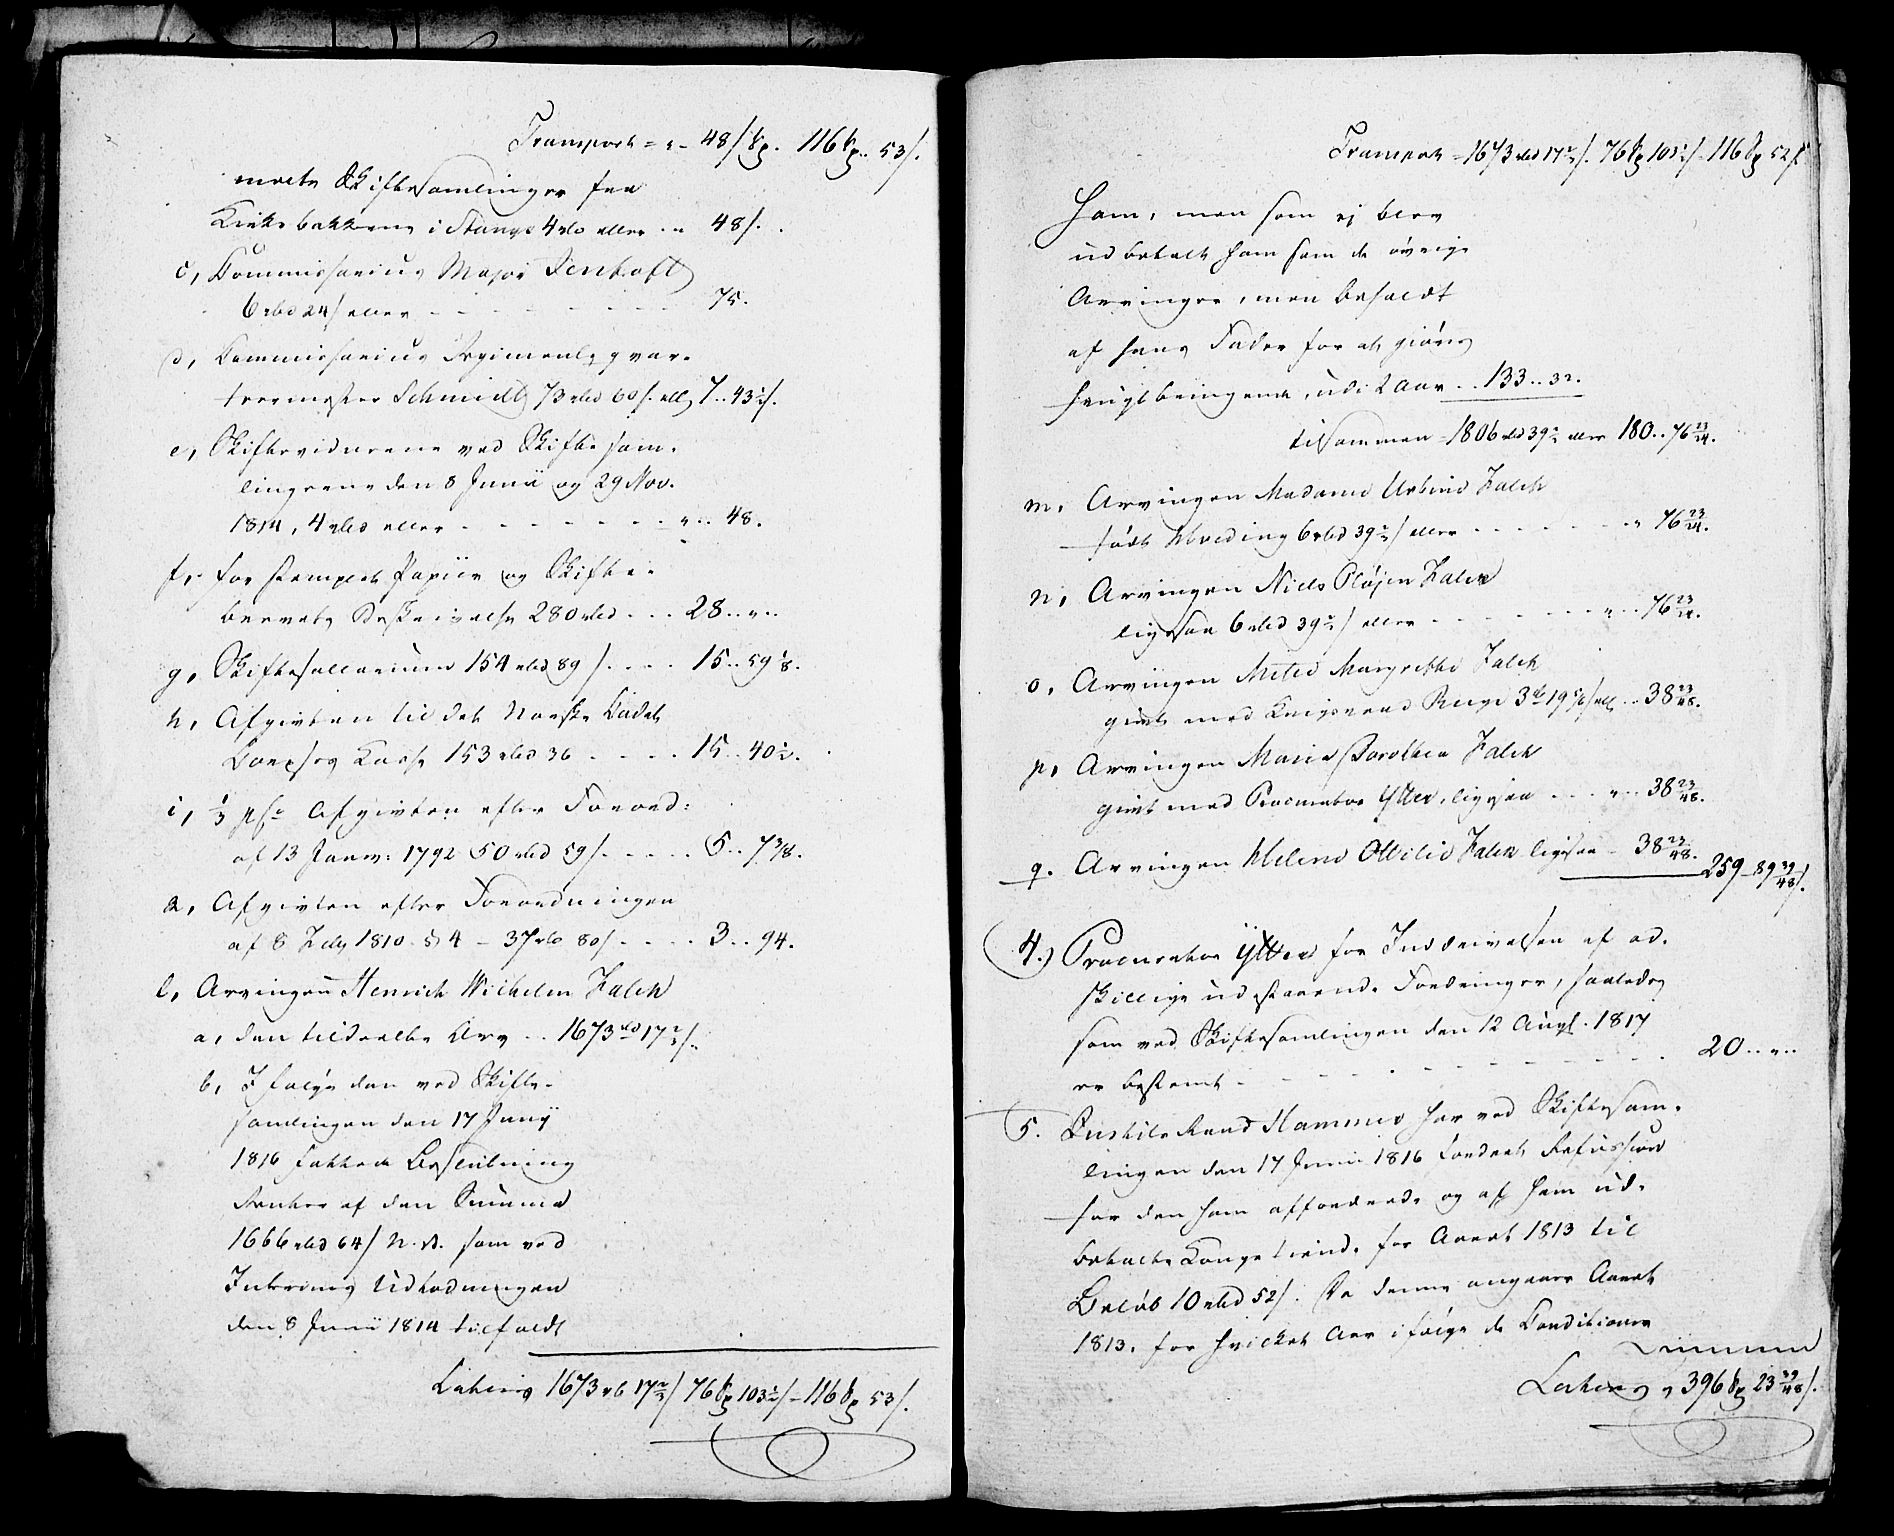 Transport = „ – 48 / Sp. 116 Sp. 53 /.
marts Skiftesamlinger fra
Kirkebakkens i Stange 4 rbd eller .. „ 48 /.
c, Commissarius Major Isenhoft
6 rbd 24 / eller - - - - - - - 75.
d, Commissarius Regimentsqvar-
teermester Schmidt 73 rbd 60 /. ell 7 .. 43½ /.
e, Skiftevidnerne ved Skiftesam-
lingerne den 8 Junii og 29 Nov.
1814, 4 rbd eller - - - - - - - „ .. 48.
f, for stemplet Papiir og Skifte-
brevets Beskrivelse 280 rbd - - - 28 .. „ ..
g, Skiftesallarium 154 rbd 89 / . . . . 15 .. 59⅛.
h, Afgivten til det Norske Cadet
Corpses Kasse 153 rbd 36 - - - - 15 .. 40½.
i, ⅓ pCt Afgivten efter Forord:
af 13 Janv: 1792 50 rbd 59 / . . . . . 5 .. 7⅜.
k, Afgivten efter Forordningen
af 8 Feby 1810 § 4 – 37 rbd 80 / - - - - 3 .. 94.
l, Arvingen Henrich Wilhelm Falck
a, den tildeelte Arv .. 1673 rbd 17⅔ /.
b, Ifølge den ved Skifte-
samlingen den 17 Junij
1816 fattede Beslutning
Renter af den Summa
1666 rbd 64 / N. V. som ved
Interims Udlodningen
den 8 Junii 1814 tilfaldt
Lateris 1673 rb 17⅔ / 76 Sp 103½ / – 116 Sp 53 /.
Transport = 1673 rbd 17⅔ /. 76 Sp 103½ / – 116 Sp 52 /
ham, men som ej blev
udbetalt ham som de øvrige
Arvinger, men beholdt
af hans Fader for at giøres
frugtbringende, udi 2 Aar .. 133 .. 32.
tilsammen = 1806 rbd 39½ eller 180 .. 76 23/24.
m, Arvingen Madame Falck
født Hveding 6 rbd 39½ / eller - - - - - - „ 76 23/24.
n, Arvingen Niels Pløjen Falck
ligesaa 6 rbd 39½ / eller - - - - - - - „ .. 76 23/24.
o, Arvingen Mette Margrethe Falck
givt med Krigsraad 3 rb 19 / ell .. 38 23/48.
p, Arvingen Maria Dorothea Falck
givt med Procurator Ytter, ligesaa - - - „ .. 38 23/48.
q. Arvingen Helene Ottilie Falck ligesaa - 38 23/48. 259 – 89 39/48 /.
4.) Procurator Ytter for Inddrivelsen af ad-
skillige udestaaende Fordringer, saaledes
som ved Skiftesamlingen den 12 Augt. 1817
er bestemt - - - - - - - - - 20 .. „ ..
5. Justitsraad Hammer har ved Skiftesam-
lingen den 17 Junii 1816 fordret Refussion
for den ham affordrede og af ham ud-
betalte Kongetiende for Aaret 1813 til
Beløb 10 rbd 52 /. Da denne angaaer Aaret
1813, for hvilket Aar ifølge de Conditioner
Lateris „ 396 Sp 23 39/48 /.